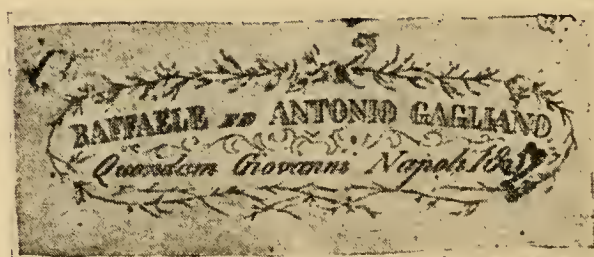 RAFFAELE ED ANTONIO GAGLIANO
Quondam Giovanni Napoli